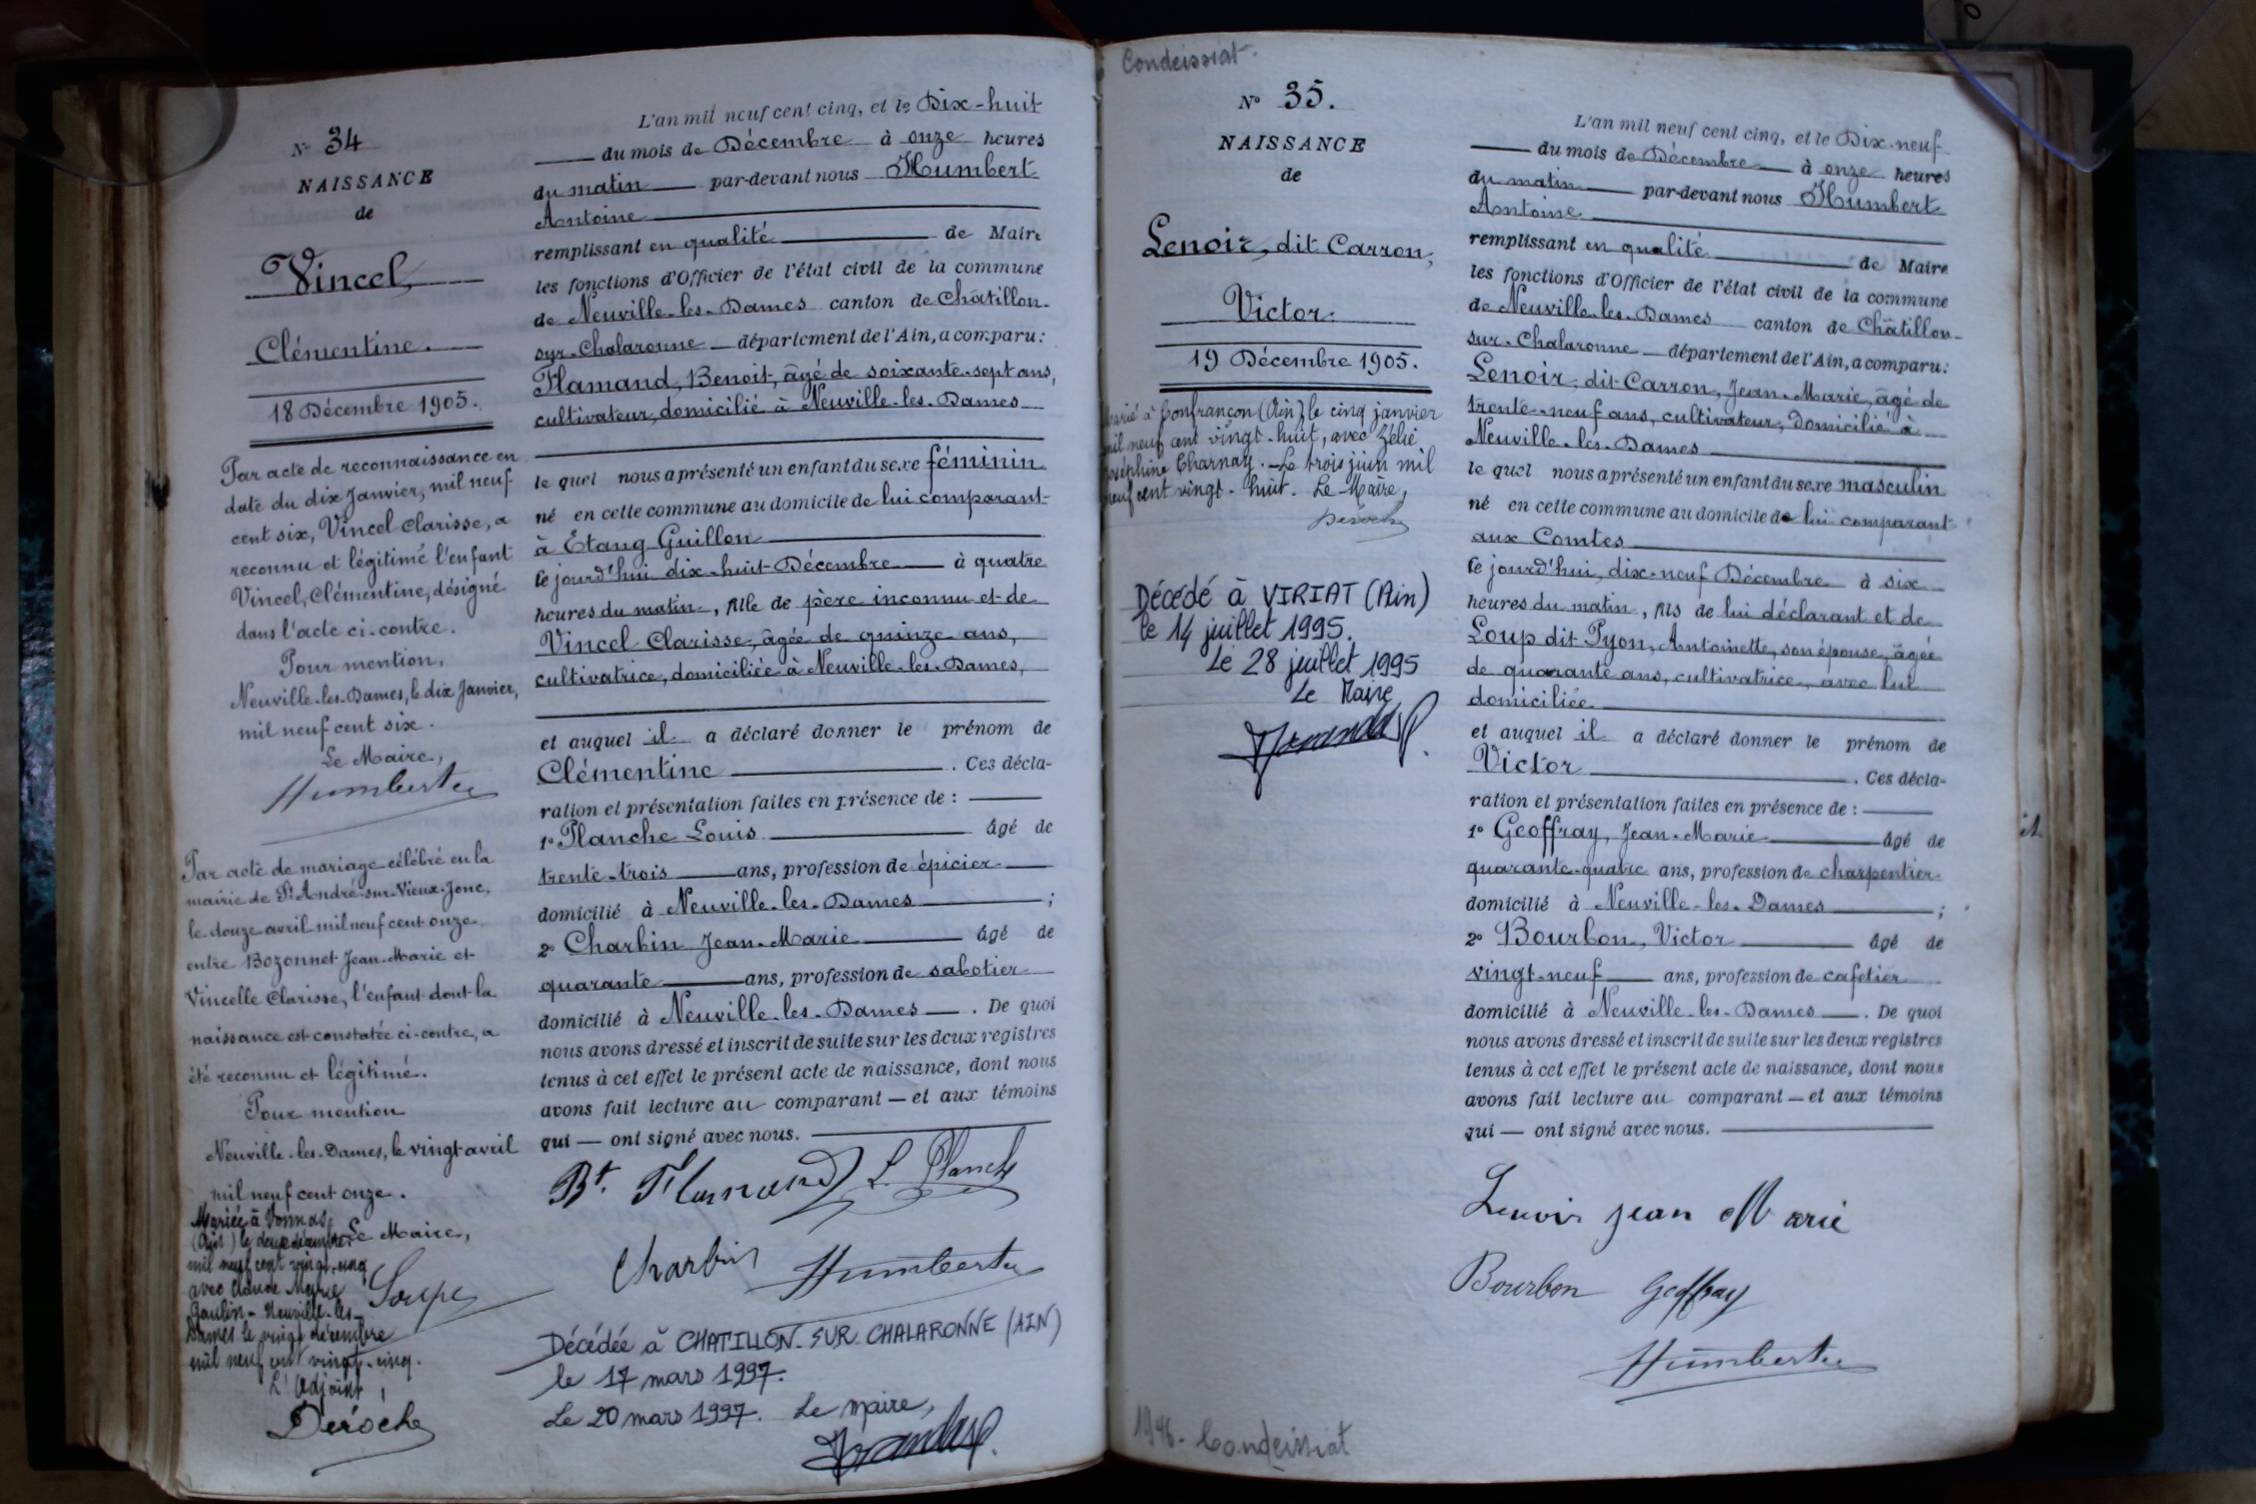 N° 34
NAISSANCE
de
Vincel
Clémentine.
18 Décembre 1905.
Par acte de reconnaissance en
date du dix Janvier, mil neuf
cent six, Vincel Clarisse, a
reconnu et légitimé l'enfant
Vincel, Clémentine, désigné
dans l'acte ci-contre.
Pour mention,
Neuville-les-Dames, le dix Janvier,
mil neuf cent six.
Le Maire,
Humbert
Par acte de mariage célébré en la
mairie de St André-sur-Vieux-Jonc,
le douze avril mil neuf cent onze
entre Bozonnet Jean-Marie et
Vincelle Clarisse, l'enfant dont la
naissance est constatée ci-contre, a
été reconnu et légitimé.
Pour mention
Neuville-les-Dames, le vingt avril
mil neuf cent onze.
Le Maire,
Soupe
Mariée à Vonnas
(Ain) le deux décembre
mil neuf cent vingt-cinq
avec Claude Marie
Gaulin - Neuville-les-
Dames le vingt décembre
mil neuf cent vingt-cinq.
L'Adjoint,
Deroche
L'an mil neuf cent cinq, et le Dix-huit
du mois de Décembre à onze heures
du matin par-devant nous Humbert
Antoine
remplissant en qualité de Maire
les fonctions d'Officier de l'état civil de la commune
de Neuville-les-Dames canton de Châtillon-
sur-Chalaronne département de l'Ain, a comparu:
Flamand, Benoit, âgé de soixante-sept ans,
cultivateur, domicilié à Neuville-les-Dames
le quel nous a présenté un enfant du sexe féminin
né en cette commune au domicile de lui comparant
à Étang Guillon
ce jourd'hui dix-huit Décembre à quatre
heures du matin, fille de père inconnu et de
Vincel Clarisse, âgée de quinze ans,
cultivatrice, domiciliée à Neuville-les-Dames,
et auquel il a déclaré donner le prénom de
Clémentine. Ces décla-
ration et présentation faites en présence de :
1° Planche Louis âgé de
trente-trois ans, profession de épicier
domicilié à Neuville-les-Dames ;
2° Charbin Jean-Marie âgé de
quarante ans, profession de sabotier
domicilié à Neuville-les-Dames. De quoi
nous avons dressé et inscrit de suite sur les deux registres
tenus à cet effet le présent acte de naissance, dont nous
avons fait lecture au comparant — et aux témoins
qui — ont signé avec nous.
Bt. Flamand L. Planche
Charbin Humbert
Décédée à CHATILLON-SUR-CHALARONNE (AIN)
le 17 mars 1997.
Le 20 mars 1997. Le maire,
Condeissiat
N° 35.
NAISSANCE
de
Lenoir, dit Carron,
Victor.
19 Décembre 1905.
Marié à Confrançon (Ain) le cinq janvier
mil neuf cent vingt-huit, avec Zélie
Joséphine Charnay. - Le trois juin mil
neuf cent vingt-huit. Le Maire,
Deroche
Décédé à VIRIAT (Ain)
le 14 juillet 1995.
Le 28 juillet 1995
Le Maire
1946 - Condeissiat
L'an mil neuf cent cinq, et le Dix-neuf
du mois de Décembre à onze heures
du matin par-devant nous Humbert
Antoine
remplissant en qualité de Maire
les fonctions d'Officier de l'état civil de la commune
de Neuville-les-Dames canton de Châtillon-
sur-Chalaronne département de l'Ain, a comparu:
Lenoir, dit Carron, Jean-Marie, âgé de
trente-neuf ans, cultivateur, domicilié à
Neuville-les-Dames
le quel nous a présenté un enfant du sexe masculin
né en cette commune au domicile de lui comparant
aux Comtes
ce jourd'hui, dix-neuf Décembre à six
heures du matin, fils de lui déclarant et de
Loup dit Pyon, Antoinette, son épouse, âgée
de quarante ans, cultivatrice, avec lui
domiciliée
et auquel il a déclaré donner le prénom de
Victor. Ces décla-
ration et présentation faites en présence de :
1° Geoffray, Jean-Marie âgé de
quarante-quatre ans, profession de charpentier
domicilié à Neuville-les-Dames ;
2° Bourbon, Victor âgé de
vingt-neuf ans, profession de cafetier
domicilié à Neuville-les-Dames. De quoi
nous avons dressé et inscrit de suite sur les deux registres
tenus à cet effet le présent acte de naissance, dont nous
avons fait lecture au comparant — et aux témoins
qui — ont signé avec nous.
Lenoir jean Marie
Bourbon Geoffray
Humbert